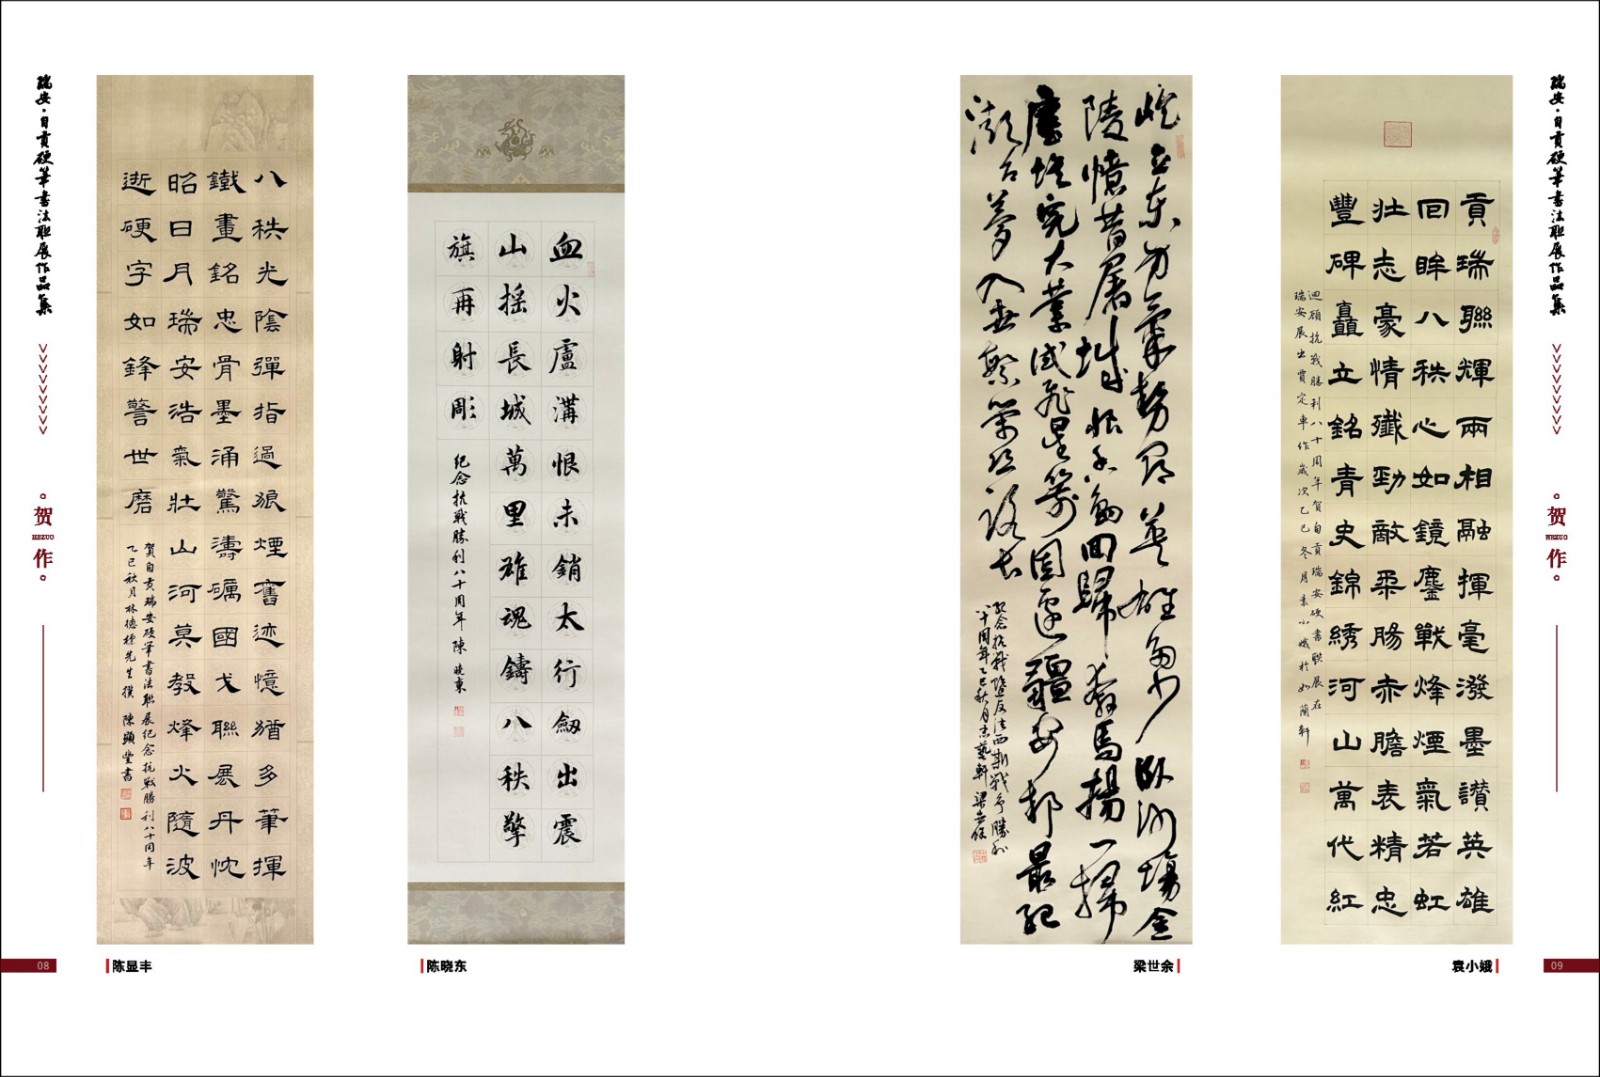 瑞安·自貢硬筆書法聯展作品集
賀
HEZUO
作
八秩光陰彈指過狼煙舊迹憶猶多筆揮
鐵畫銘忠骨墨涌驚濤礪國戈聯展丹忱
昭日月瑞安浩氣壯山河莫教烽火隨波
逝硬字如鋒警世磨
賀自貢瑞安硬筆書法聯展紀念抗戰勝利八十周年
乙巳秋月林德先生撰 陳顯豐書
08
陈显丰
血火盧溝恨未銷太行劍出震
山搖長城萬里雄魂鑄八秩擎
旗再射彫
紀念抗戰勝利八十周年 陳曉東
陈晓东
屹立東方氣勢英雄臥沙場金
陵憤昔屠城恨回歸奔馬揚一掃
塵埃完大業飛星箭固邊疆安邦最記
夢入路长
紀念抗戰暨反法西斯戰争勝利
八十周年乙巳秋月
梁世余
貢瑞聯輝兩相融揮毫潑墨讃英雄
回眸八秩心如鏡鏖戰烽煙氣若虹
壯志豪情殲勁敵柔腸赤膽表精忠
豐碑矗立銘青史錦綉河山萬代紅
迴顧抗戰勝利八十周年賀自貢瑞安硬書聯展在
瑞安展出賈定車作歲次乙巳冬月袁小娥於如蘭軒
袁小娥
瑞安·自貢硬筆書法聯展作品集
贺
HEZUO
作
09